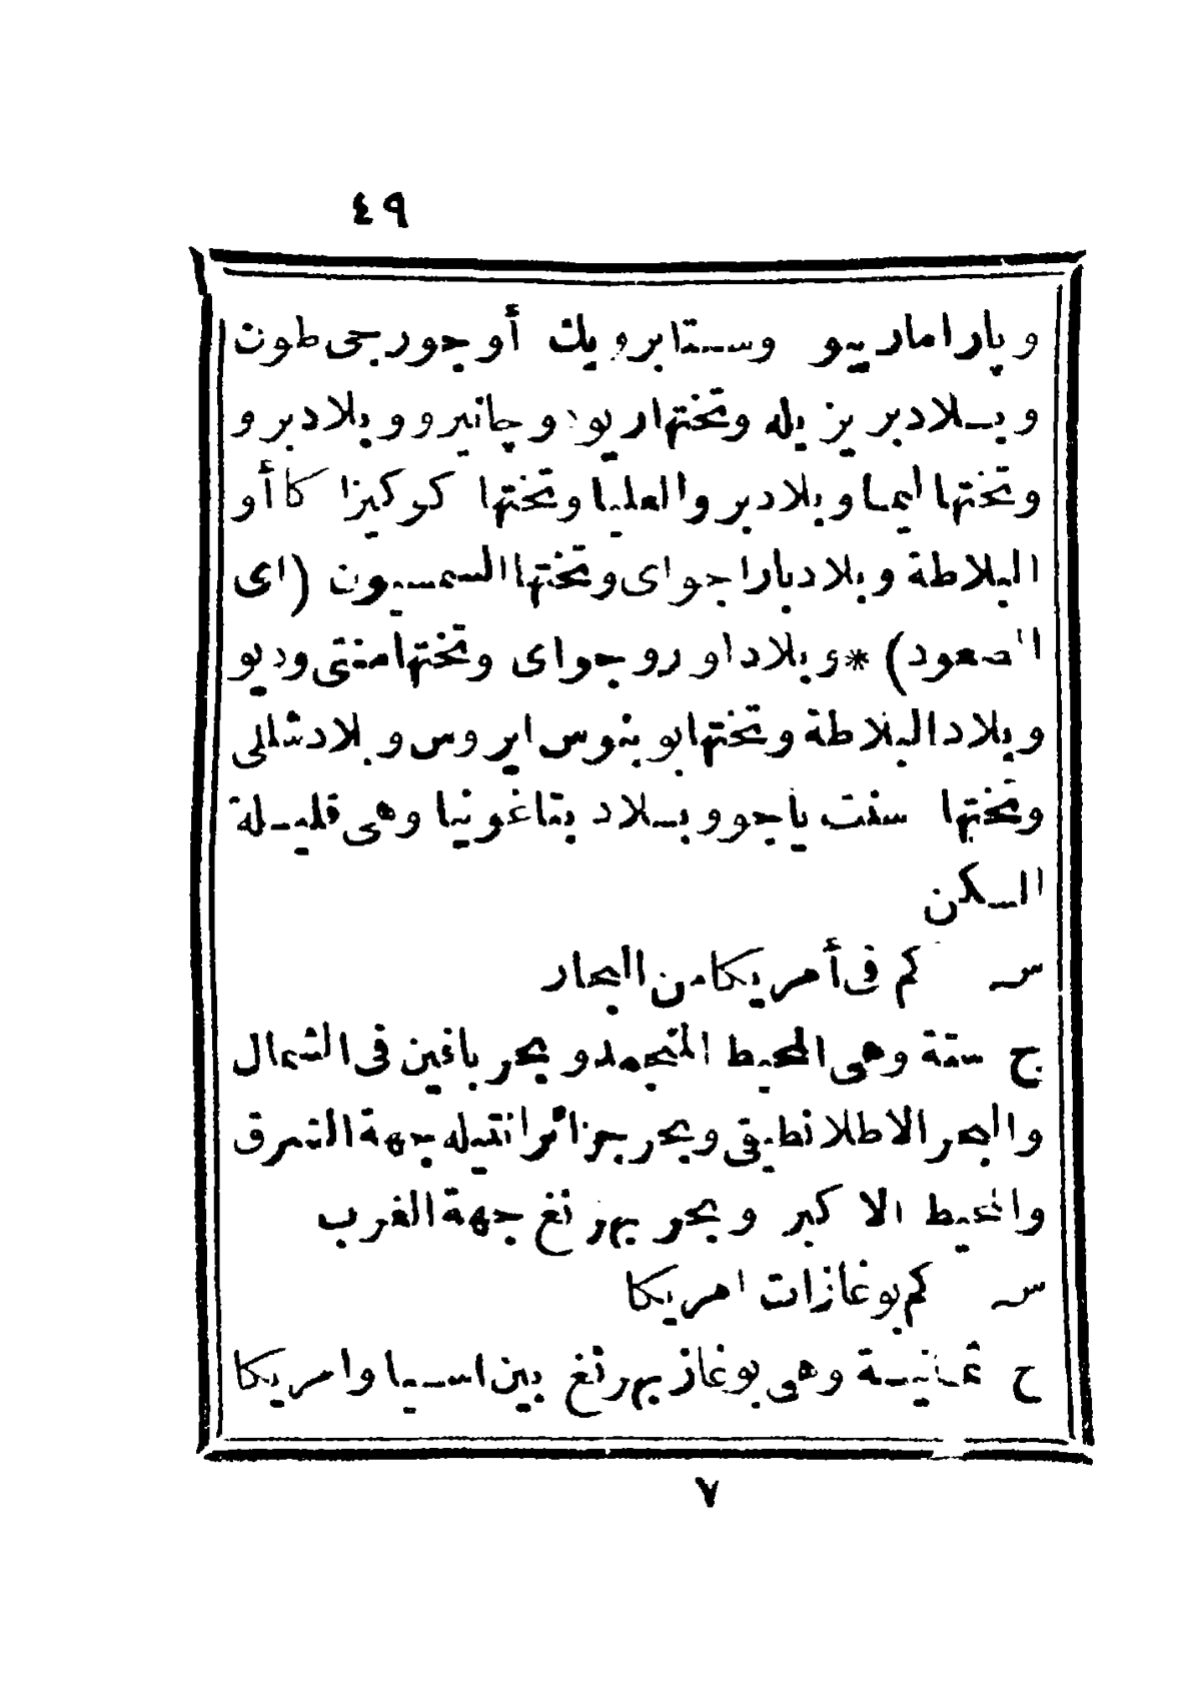 ٤٩
وپاراماريبو وستابرويك أو جورجى طون
وبلاد بريزيله وتختها ريود وچانيرو وبلاد برو
وتختها ليما وبلاد برو العليا وتختها كوكيزاكا أو
البلاطة وبلاد باراجواى وتختها السمسيون (اى
الصعود) * وبلاد اوروجواى وتختها منتى وديو
وبلاد البلاطة وتختها بوينوس ايروس وبلاد شللى
وتختها سنت ياجو وبلاد بتاغونيا وهى قليلة
السكن
س كم فى أمريكا من البحار
ج ستة وهى المحيط المتجمد وبحر بافين فى الشمال
والبحر الاطلانطيقى وبحر جزائر انتيله جهة الشرق
والمحيط الاكبر وبحر بهرنغ جهة الغرب
س كم بوغازات امريكا
ج ثمانية وهى بوغاز بهرنغ بين اسيا وامريكا
٧